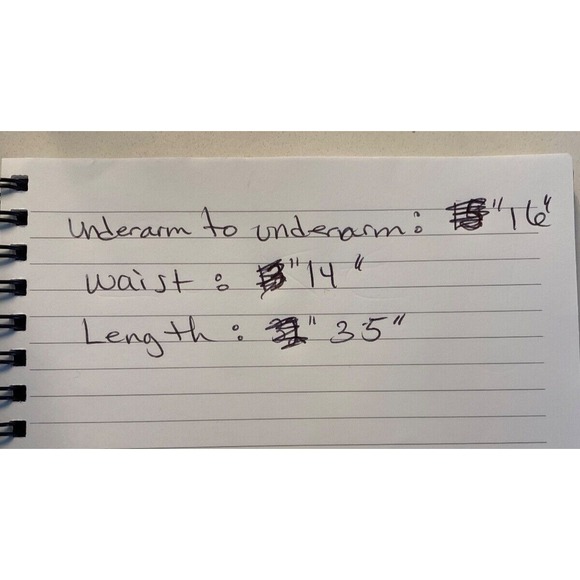 Underarm to underarm: "16"
Waist: "14"
Length: "35"